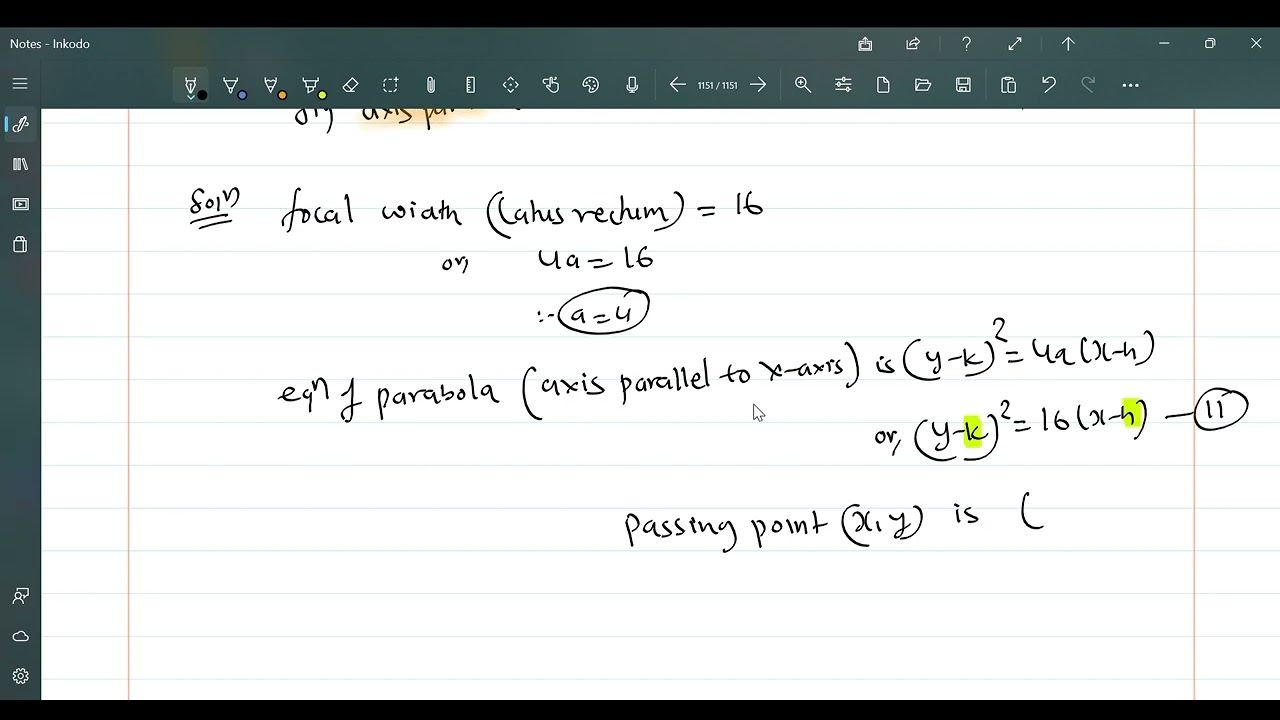 Notes - Inkodo
1151 / 1151
axis
Solⁿ focal width (latus rectum) = 16
or, 4a = 16
∴ a = 4
eqⁿ of parabola (axis parallel to x-axis) is (y-k)² = 4a(x-h)
or, (y-k)² = 16(x-h) — 11
Passing point (x, y) is (